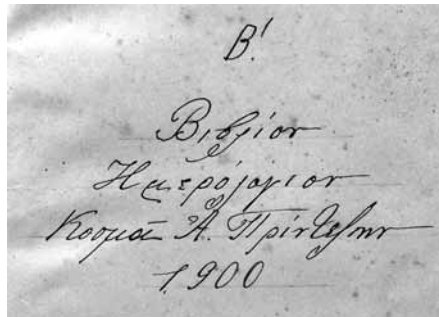 Β'.
Βιβλίον
Ημερολόγιον
Κοσμᾶ Α. Πρίντεζην
1900